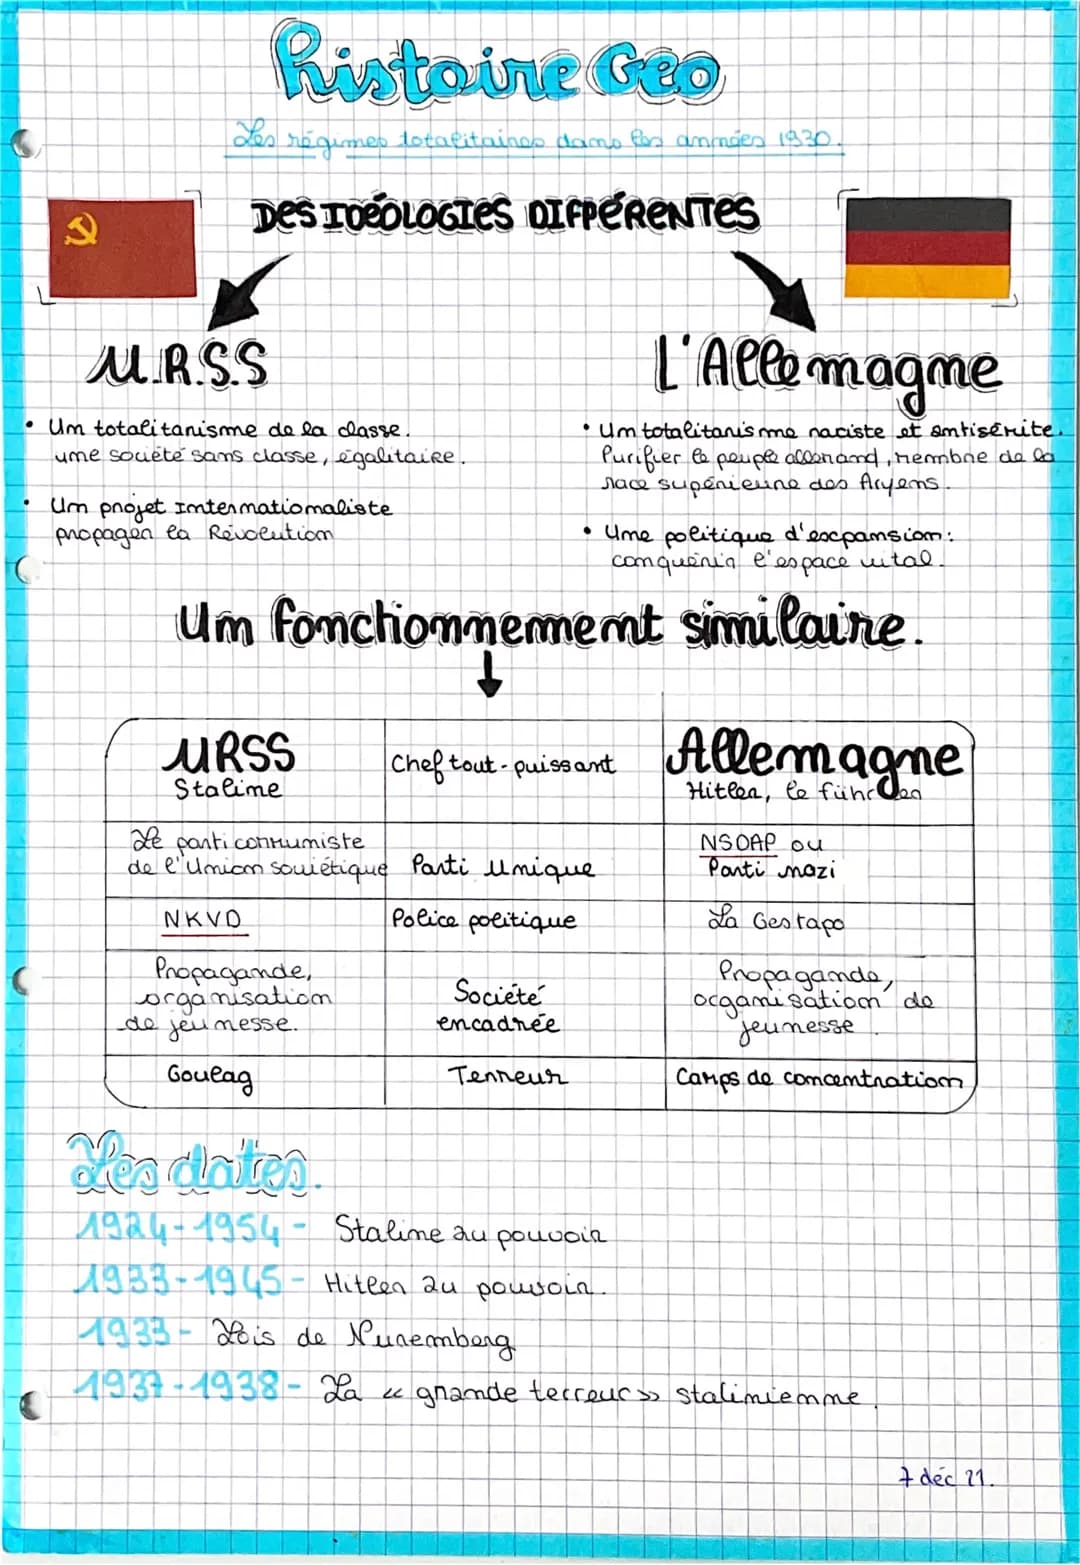 histoire Geo
Les régimes totalitaires dans les années 1930.
DES IDÉOLOGIES DIFFÉRENTES
U.R.S.S
L'Allemagne
• Un totalitarisme de la classe.
une société sans classe, égalitaire.
• Un projet Internationaliste
propager la Révolution
• Un totalitarisme raciste et antisémite.
Purifier le peuple allemand, membre de la
race supérieure des Aryens.
• Une politique d'expansion:
conquérir l'espace vital.
Un fonctionnement similaire.
URSS
Staline
Chef tout-puissant
Allemagne
Hitler, le führer
Le parti communiste
de l'Union soviétique
Parti Unique
NSDAP ou
Parti nazi
NKVD
Police politique
La Gestapo
Propagande,
organisation
de jeunesse.
Société
encadrée
Propagande,
organisation de
jeunesse
Goulag
Terreur
Camps de concentration
Les dates.
1924-1954- Staline au pouvoir
1933-1945- Hitler au pouvoir.
1933- Lois de Nuremberg
1937-1938- La « grande terreur » stalinienne.
7 déc 21.